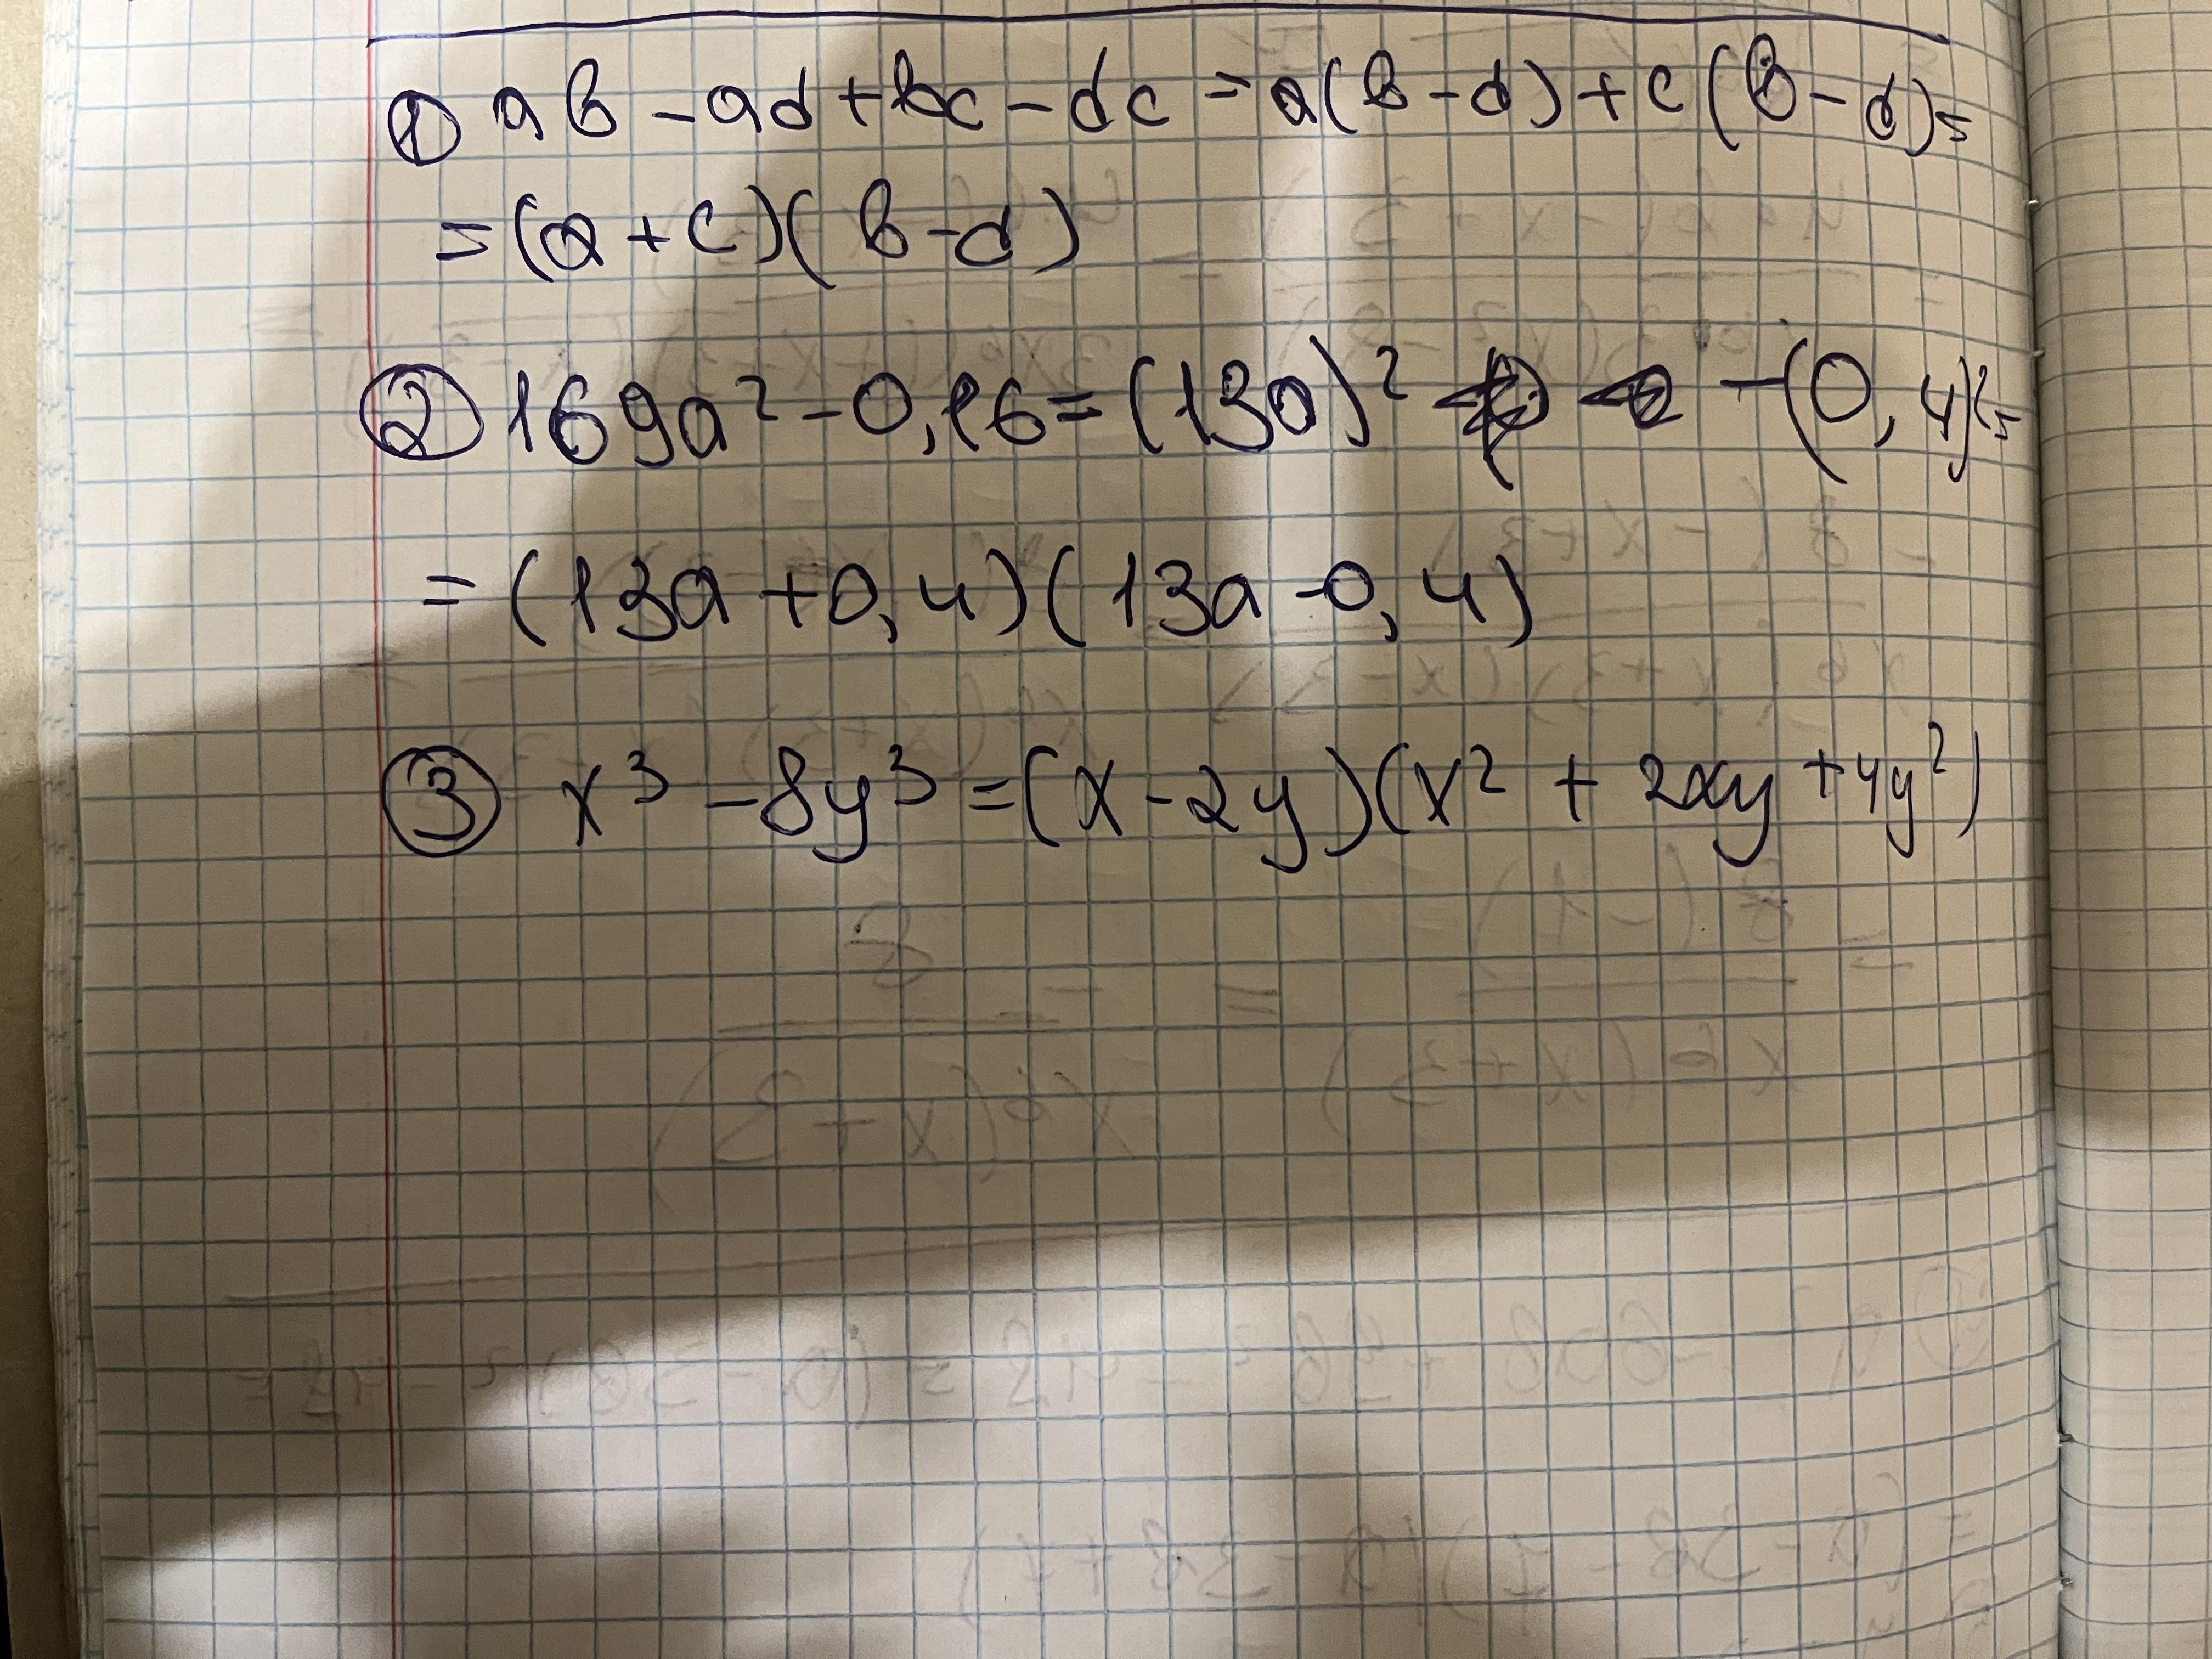 ① ab - ad + bc - dc = a(b - d) + c(b - d) =
= (a + c)(b - d)
② 169a² - 0,16 = (13a)² - (0,4)² =
= (13a + 0,4)(13a - 0,4)
③ x³ - 8y³ = (x - 2y)(x² + 2xy + 4y²)